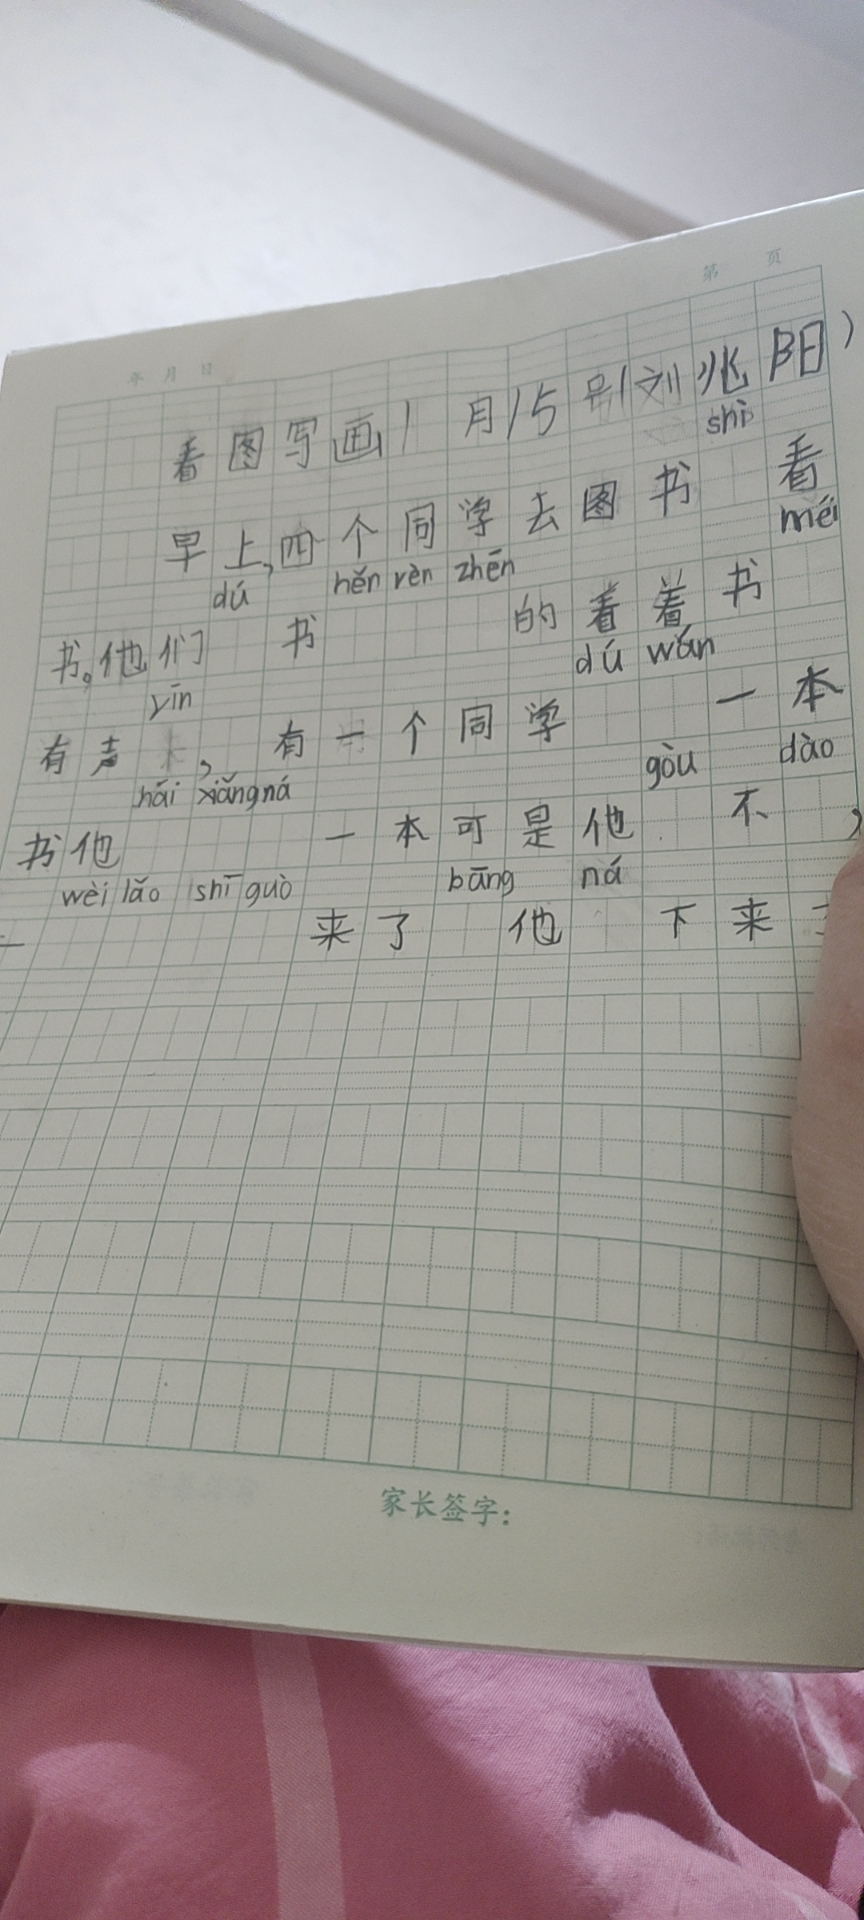 第 页
年 月 日
看图写画1月15别刘兆阳)
shì
早上,四个同学去图书 看
dú hěn rèn zhēn méi
书。他们 书 的看着书
yīn dú wán
有声 , 有一个同学 一本
hái xiǎng ná gòu dào
书他 一本可是他 不 ,
wèi lǎo shī guò bāng ná
来了 他 下来
家长签字: